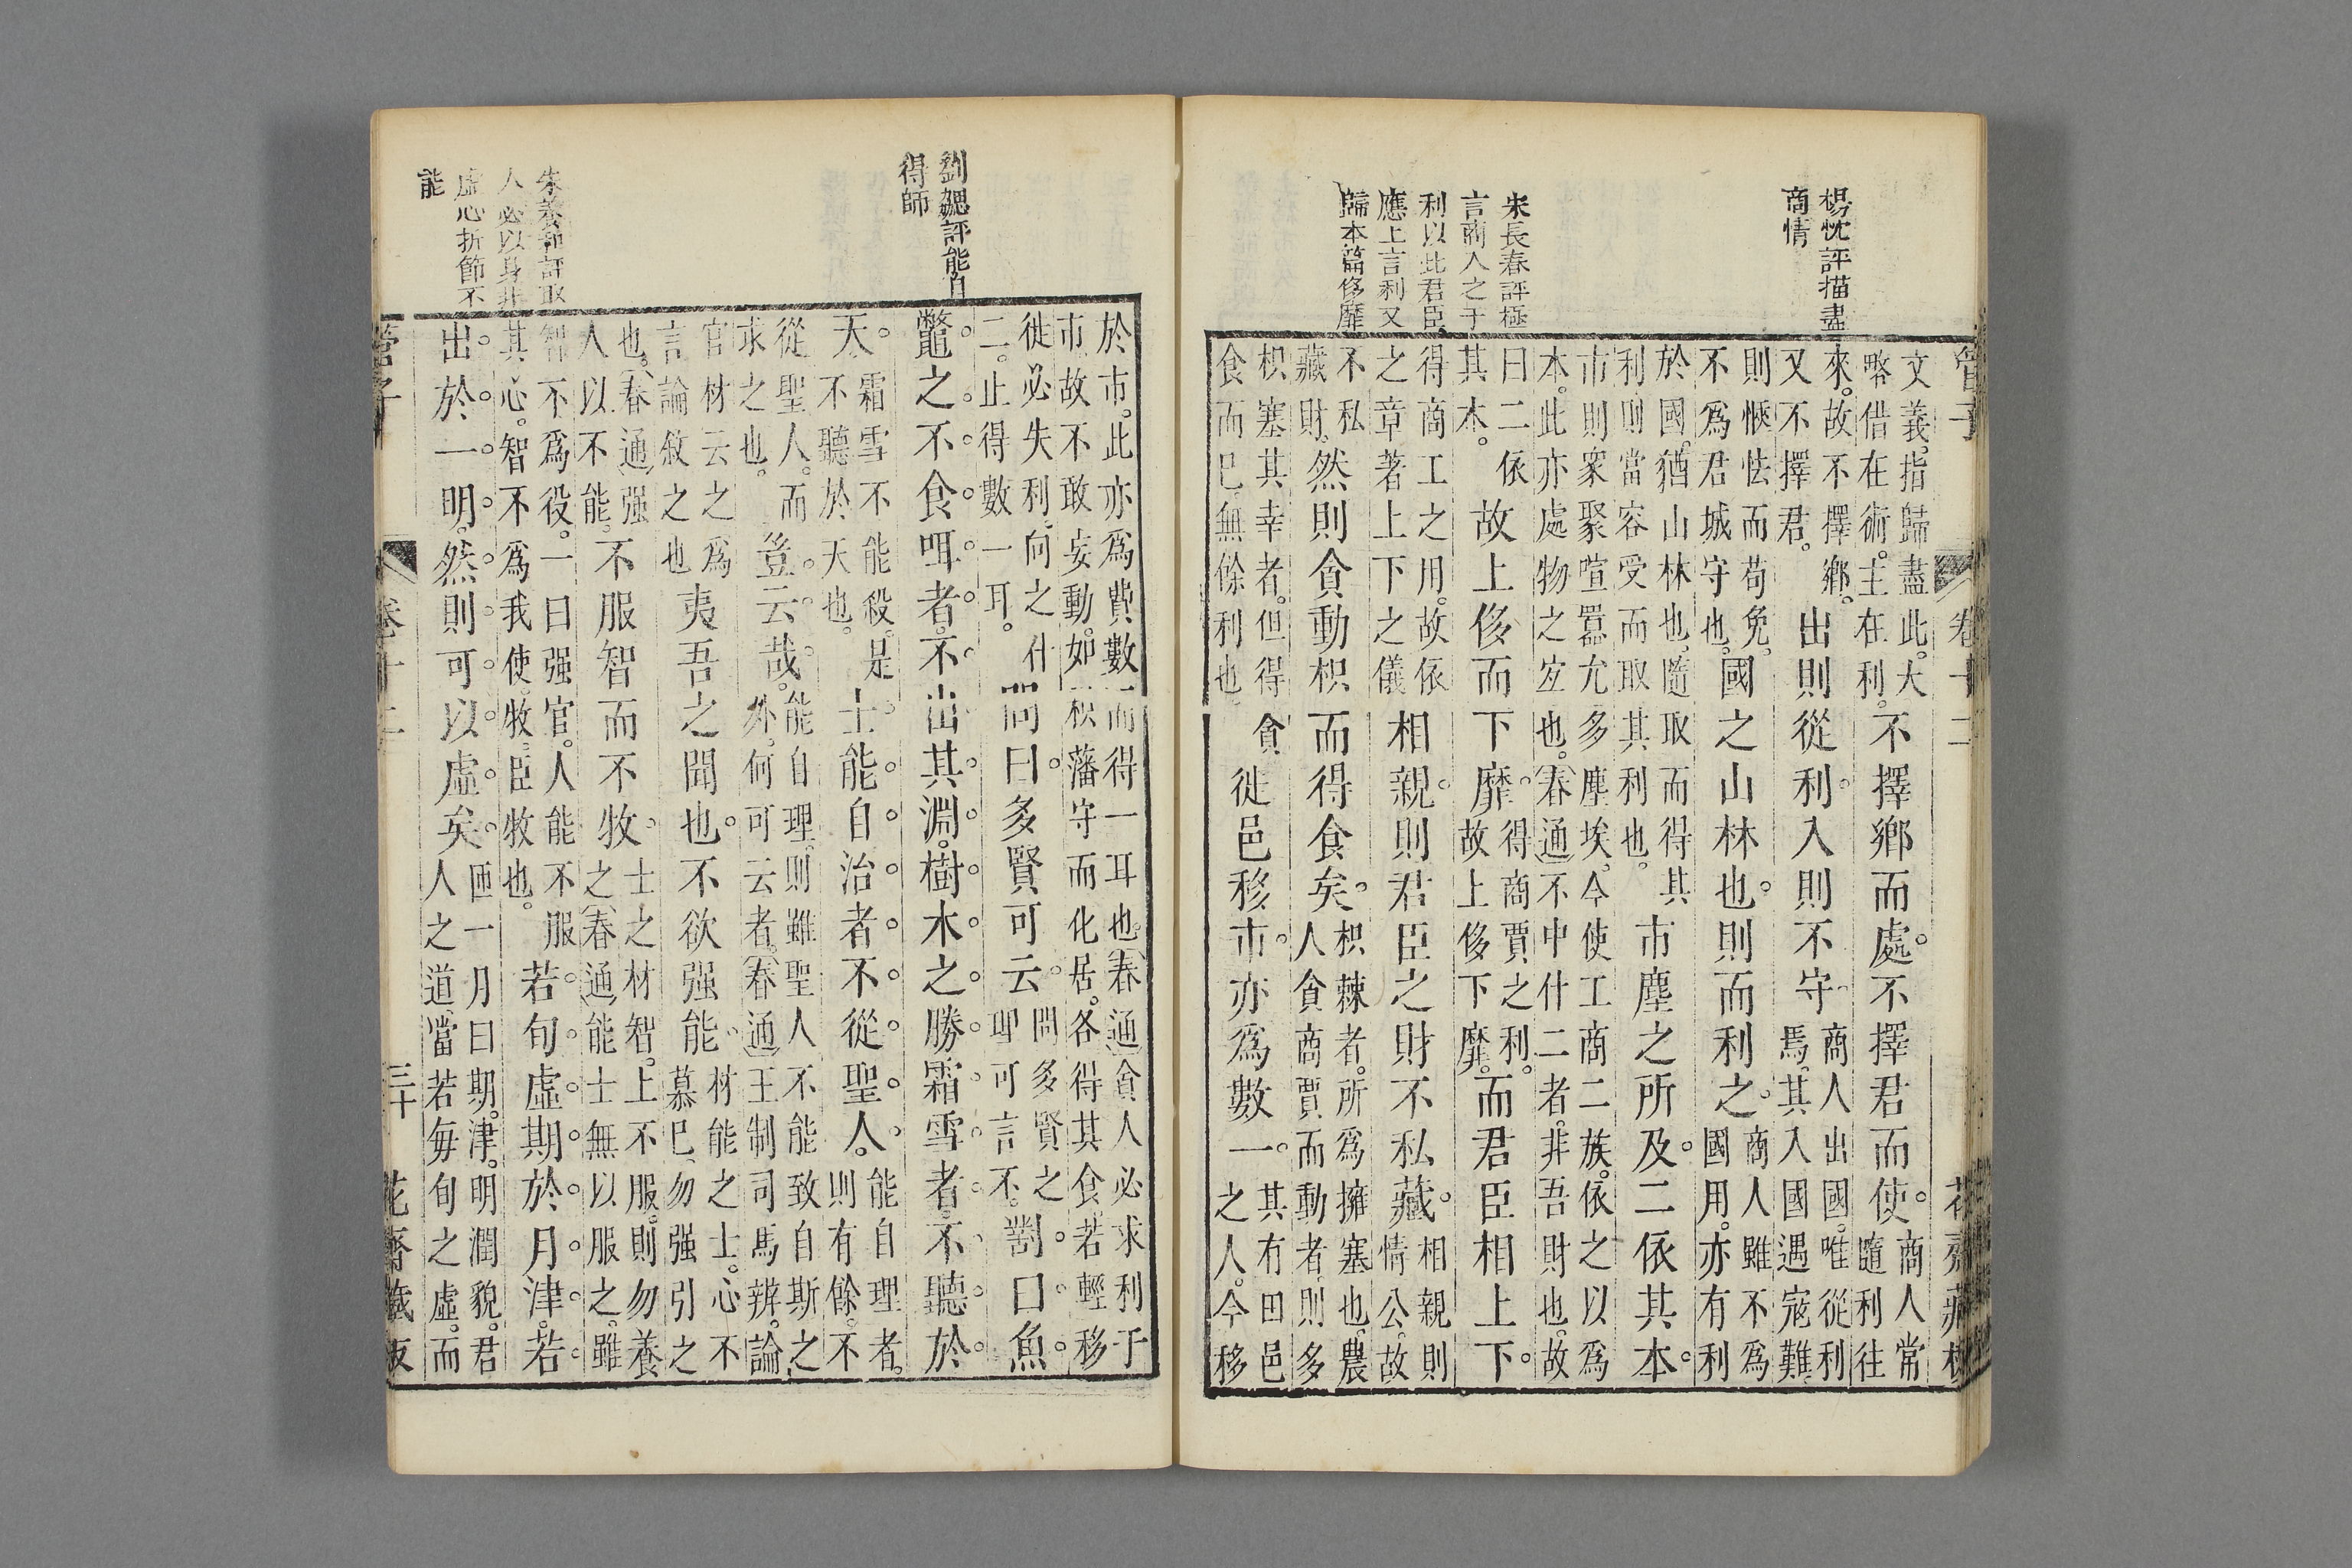 楊忱評描盡
商情
朱長春評極
言商人之于
利以此君臣
應上言利又
歸本篇侈靡
管子
卷十二
花齋藏板
文義指歸盡此。大
略借在術。主在利。
不擇鄉而處。不擇君而使。
商人常
隨利往
來。故不擇鄉。
又不擇君。
出則從利。入則不守。
商人出國。唯從利
焉。其入國遇寇難。
則愜怯而苟免。
不爲君城守也。
國之山林也。則而利之。
商人雖不爲
國用。亦有利
於國。猶山林也。隨取而得其
利。則當容受而取其利也。
市塵之所及。二依其本。
市則衆聚喧囂尤多塵埃。今使工商二族。依之以爲
本。此亦處物之宜也。(春通)不中什二者。非吾財也。故
曰二依
其本。
故上侈而下靡。
得商賈之利。
故上侈下靡。
而君臣相上下。
得商工之用。故依
之章著上下之儀
相親。則君臣之財不私藏。
相親則
情公。故
不私
藏財。
然則貪動枳而得食矣。
枳棘者。所爲擁塞也。農
人貪商賈而動者。則多
枳塞其幸者。但得
食而已。無餘利也。
貪
徙邑移市。亦爲數一。
其有田邑
之人。今移
劉勰評能自
得師
朱養和評取
人必以身非
虛心折節不
能
於市。此亦爲費數而得一耳也。(春通)貪人必求利于
市故不敢妄動。如枳藩守而化居。各得其食。若輕移
徙必失利。向之什
二。止得數一耳。
問曰。多賢可云。
問多賢之
卽可言不。
對曰。魚
鼈之不食咡者。不出其淵。樹木之勝霜雪者。不聽於
天。
霜雪不能殺。是
不聽於天也。
士能自治者。不從聖人。
能自理者。
則有餘。不
從聖人。而
求之也。
豈云哉。
能自理。則雖聖人不能致自斯之
外。何可云者。(春通)王制司馬辨。論
官材云之爲
言論敘之也
夷吾之聞也。不欲强能。
材能之士。心不
慕巳。勿强引之
也。(春通)强
人以不能。
不服智而不牧。
士之材智。上不服。則勿養
之(春通)能士無以服之。雖
智不爲役。一曰强官。人能不服
其心。智不爲我使。牧。臣牧也。
若旬虛期於月津。若
出於一明。然則可以虛矣。
匝一月曰期。津。明潤貌。君
人之道。當若每旬之虛。而
管子
卷十二
三十
花齋藏板